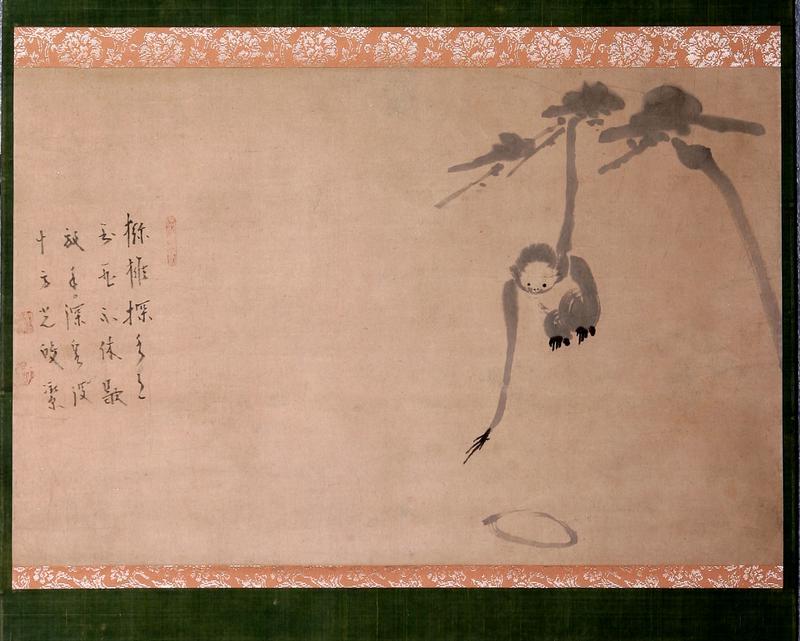 獼猴探水月
到死不休歇
放手深泉没
十方光皎潔